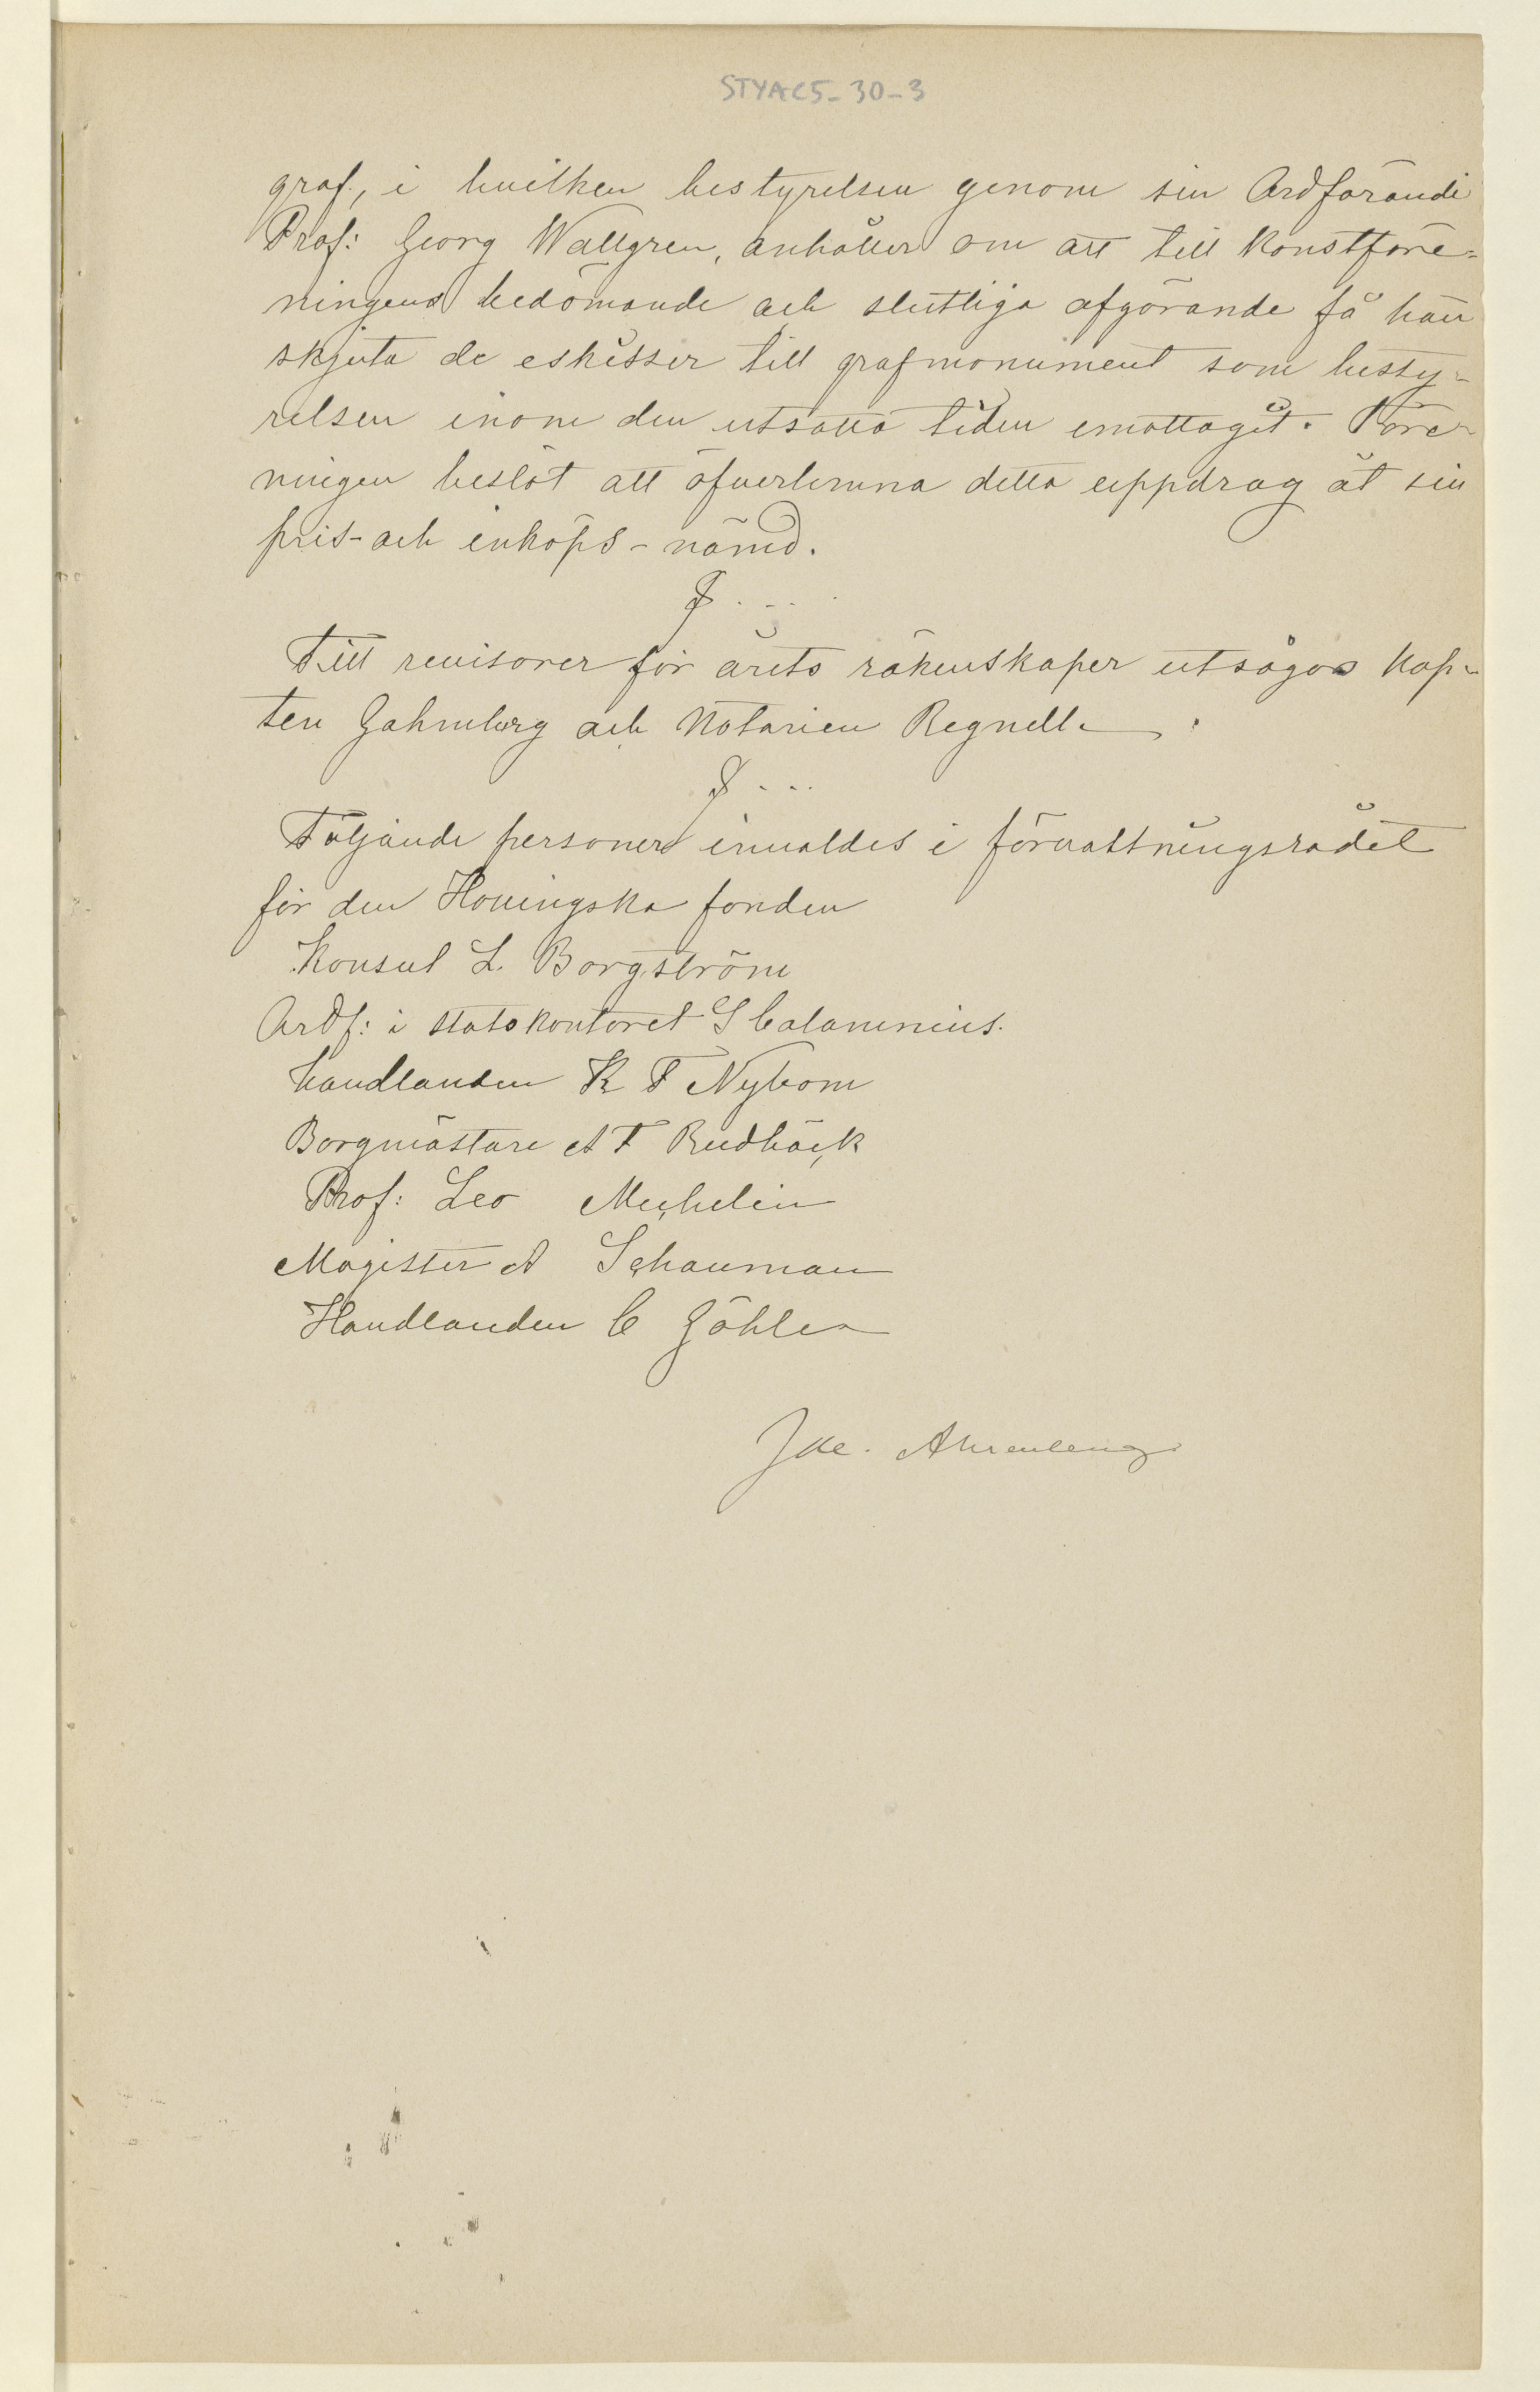 STYAC5-30-3
graf, i hvilken bestyrelsen genom sin Ordförande
Prof: Georg Wallgren, anhåller om att till Konstföre-
ningens bedömande och slutliga afgörande få hän
skjuta de eskisser till grafmonument som besty-
relsen inom den utsatta tiden emottagit. Före-
ningen beslöt att öfverlemna detta uppdrag åt sin
pris- och inköps-nämd.
§ . . .
Till revisorer för årets räkenskaper utsågos Kap-
ten Gahmberg och Notarien Regnell.
§ . . .
Följande personer invaldes i förvaltningsrådet
för den Hovingska fonden
Konsul L. Borgström
Ordf: i statskontoret S Calamnius.
handlanden K F Nybom
Borgmästare A F Rudbäck
Prof: Leo Mechelin
Magister A Schauman
Handlanden C Göhle
Jac. Ahrenberg